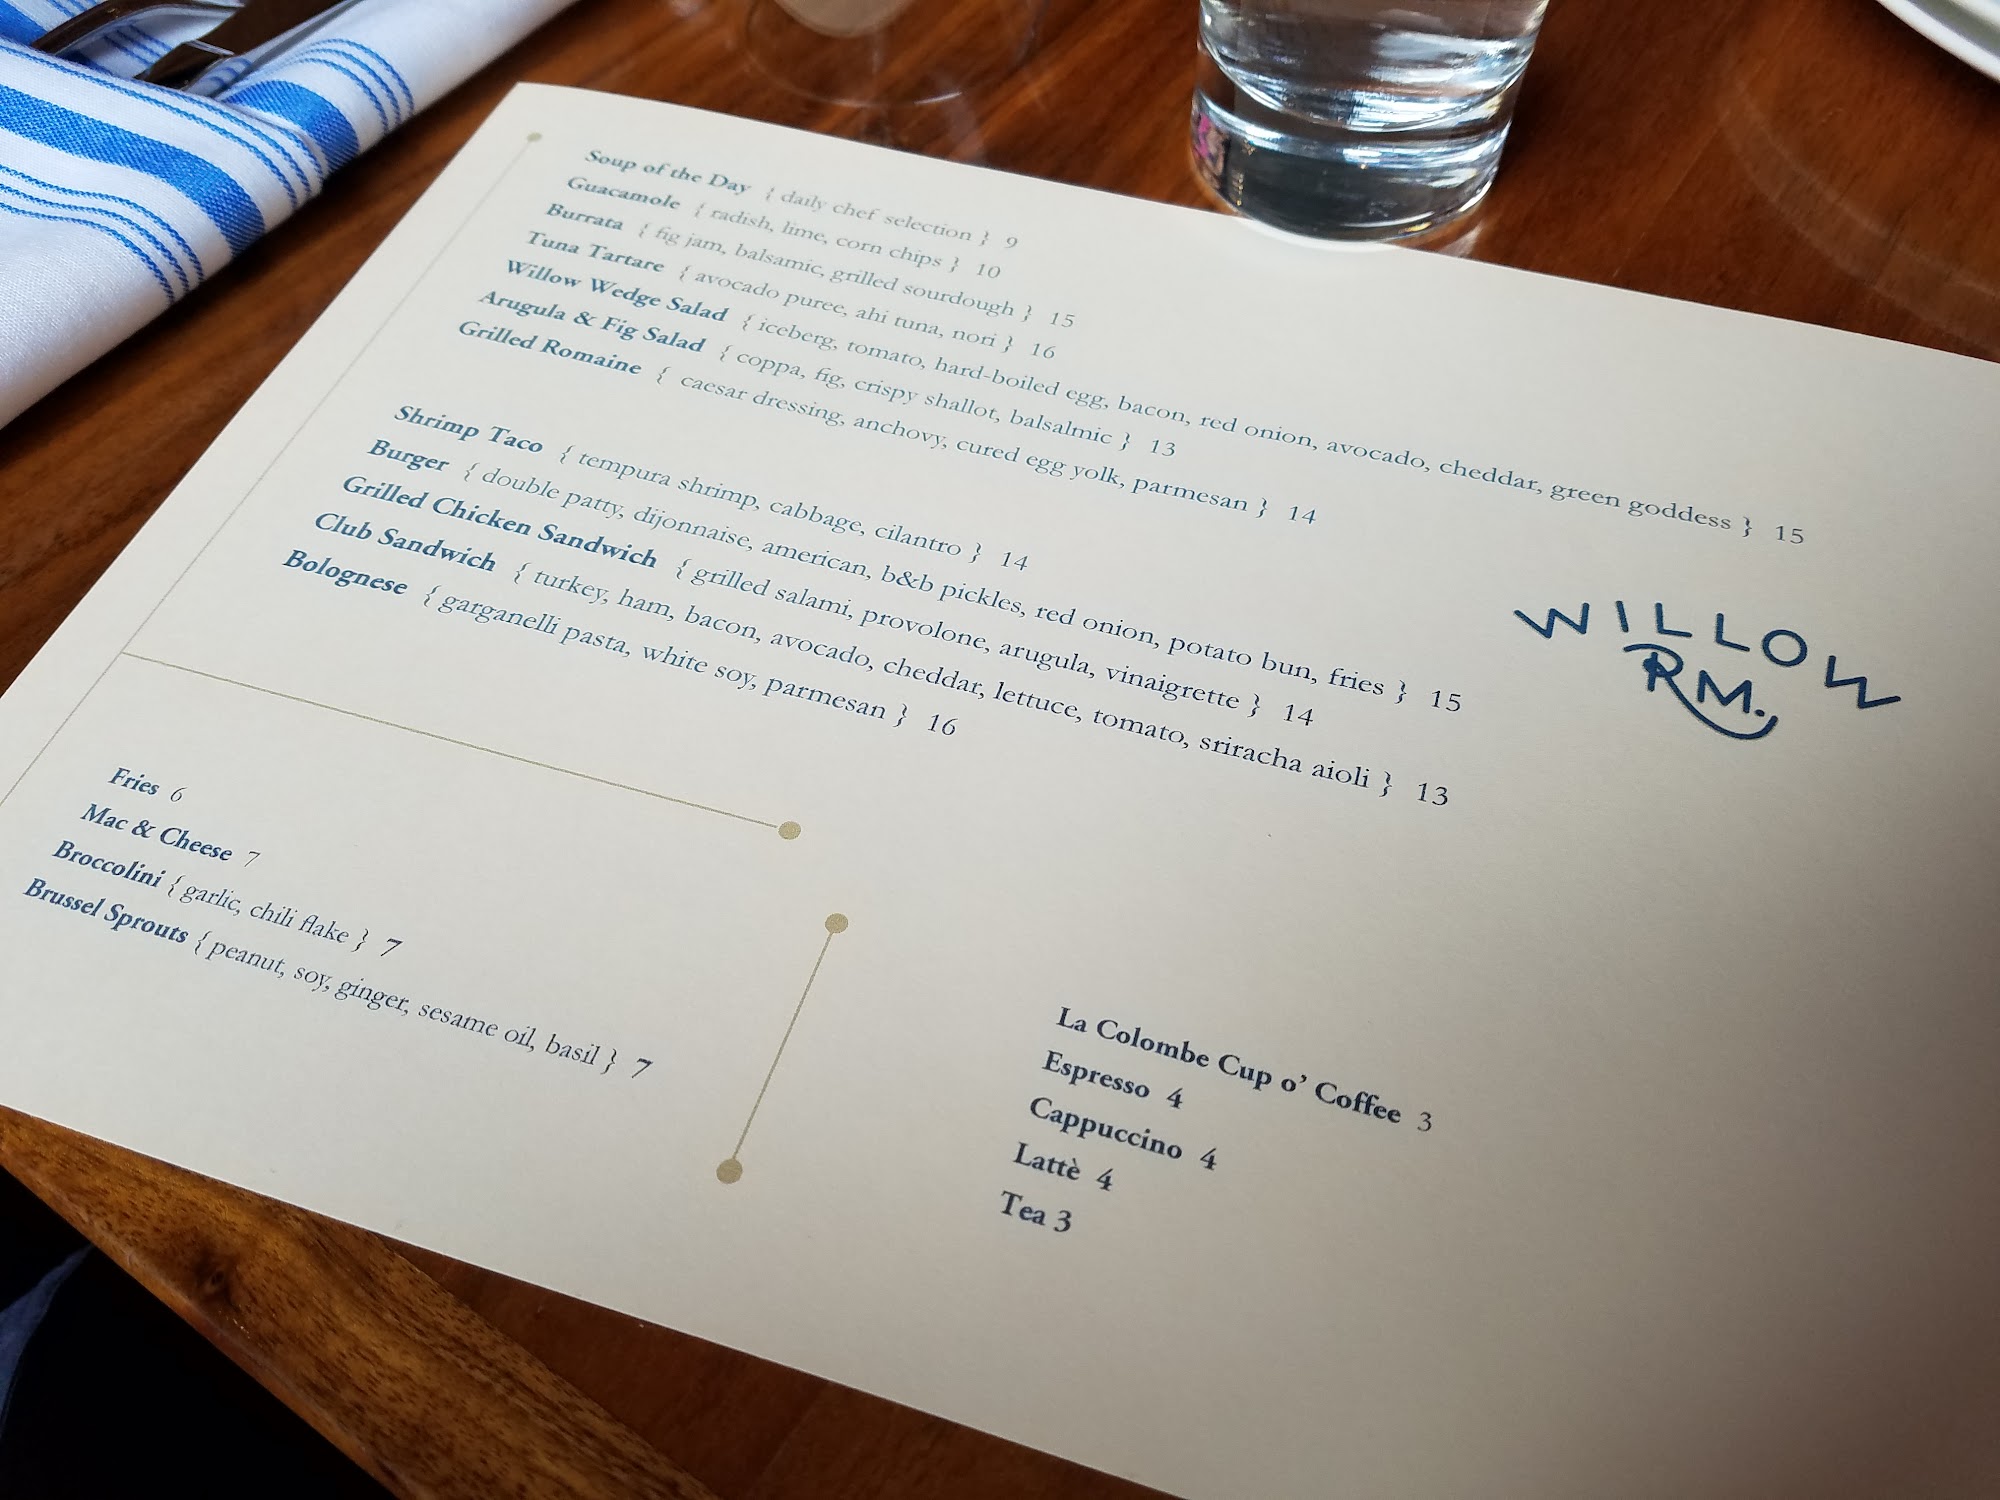 Soup of the Day { daily chef selection } 9
Guacamole { radish, lime, corn chips } 10
Burrata { fig jam, balsamic, grilled sourdough } 15
Tuna Tartare { avocado puree, ahi tuna, nori } 16
Willow Wedge Salad { iceberg, tomato, hard-boiled egg, bacon, red onion, avocado, cheddar, green goddess } 15
Arugula & Fig Salad { coppa, fig, crispy shallot, balsalmic } 13
Grilled Romaine { caesar dressing, anchovy, cured egg yolk, parmesan } 14
Shrimp Taco { tempura shrimp, cabbage, cilantro } 14
Burger { double patty, dijonnaise, american, b&b pickles, red onion, potato bun, fries } 15
Grilled Chicken Sandwich { grilled salami, provolone, arugula, vinaigrette } 14
Club Sandwich { turkey, ham, bacon, avocado, cheddar, lettuce, tomato, sriracha aioli } 13
Bolognese { garganelli pasta, white soy, parmesan } 16
WILLOW
RM.
Fries 6
Mac & Cheese 7
Broccolini { garlic, chili flake } 7
Brussel Sprouts { peanut, soy, ginger, sesame oil, basil } 7
La Colombe Cup o' Coffee 3
Espresso 4
Cappuccino 4
Lattè 4
Tea 3